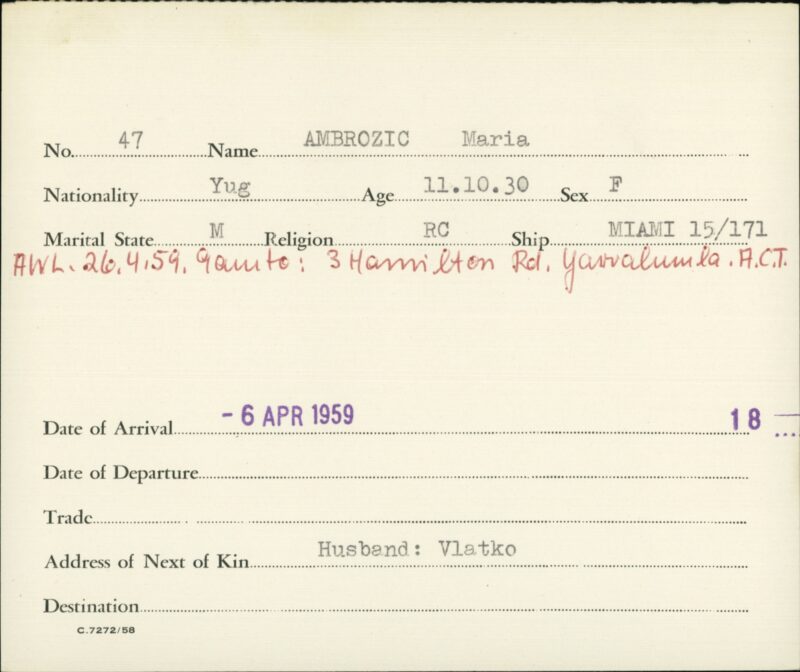 No. 47 Name AMBROZIC Maria
Nationality Yug Age 11.10.30 Sex F
Marital State M Religion RC Ship MIAMI 15/171
AWL. 26.4.59. to: 3 Hamilton Rd. Yarralumla. A.C.T.
Date of Arrival - 6 APR 1959 18
Date of Departure
Trade
Address of Next of Kin Husband: Vlatko
Destination
C.7272/58